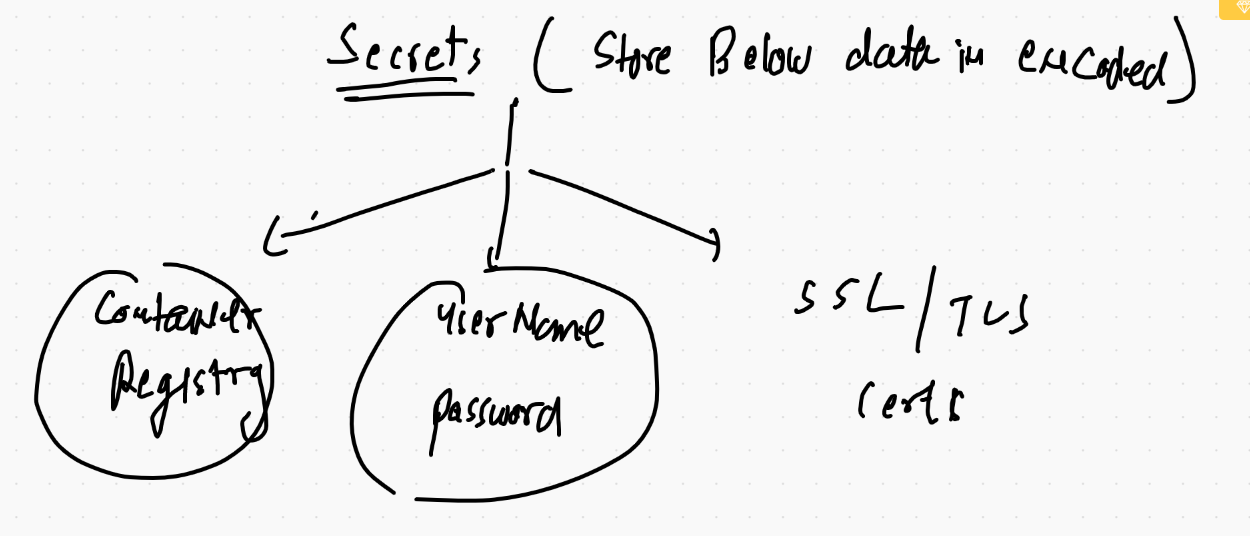 Secrets ( Store Below data in encoded )
Container
Registry
UserName
password
SSL/TLS
Certs